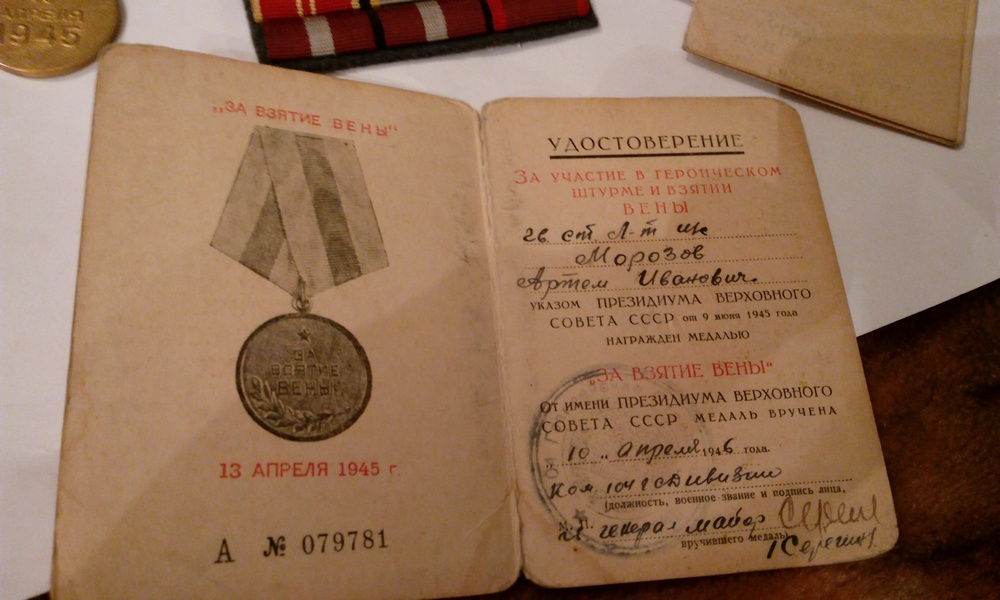 АПРЕЛЯ
1945
„ЗА ВЗЯТИЕ ВЕНЫ“
ЗА
ВЗЯТИЕ
ВЕНЫ
13 АПРЕЛЯ 1945 г.
А № 079781
УДОСТОВЕРЕНИЕ
ЗА УЧАСТИЕ В ГЕРОИЧЕСКОМ
ШТУРМЕ И ВЗЯТИИ
ВЕНЫ
гв. ст. л-т
Морозов
Артем Иванович.
УКАЗОМ ПРЕЗИДИУМА ВЕРХОВНОГО
СОВЕТА СССР от 9 июня 1945 года
НАГРАЖДЕН МЕДАЛЬЮ
„ЗА ВЗЯТИЕ ВЕНЫ“
От имени ПРЕЗИДИУМА ВЕРХОВНОГО
СОВЕТА СССР МЕДАЛЬ ВРУЧЕНА
10 „ апреля 1946 года.
Ком. 104 гсДивизии
(должность, военное звание и подпись лица,
М. П.
гв. генерал майор
вручившего медаль)
/Серегин/